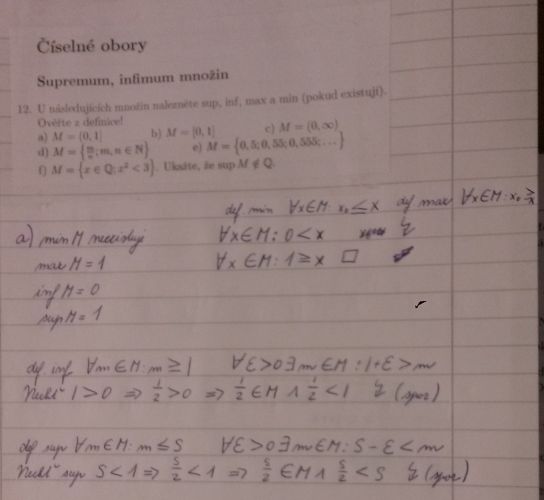 Číselné obory
Supremum, infimum množin
12. U následujících množin nalezněte sup, inf, max a min (pokud existují).
Ověřte z definice!
a) M = (0, 1] b) M = [0, 1] c) M = (0, ∞)
d) M = {m/n; m, n ∈ ℕ} e) M = {0, 5; 0, 55; 0, 555; ...}
f) M = {x ∈ ℚ; x² < 3}. Ukažte, že sup M ∉ ℚ.
def. min ∀x∈M: x₀ ≤ x def max ∀x∈M: x₀ ≥ x
a) min M neexistuje ∀x∈M: 0 < x ↯
max M = 1 ∀x∈M: 1 ≥ x □
inf M = 0
sup M = 1
def. inf ∀m∈M: m ≥ l ∀ε>0 ∃m∈M: l+ε > m
Nechť l > 0 ⇒ l/2 > 0 ⇒ l/2 ∈ M ∧ l/2 < l ↯ (spor)
def sup ∀m∈M: m ≤ S ∀ε>0 ∃m∈M: S-ε < m
Nechť sup S < 1 ⇒ S/2 < 1 ⇒ S/2 ∈ M ∧ S/2 < S ↯ (spor)